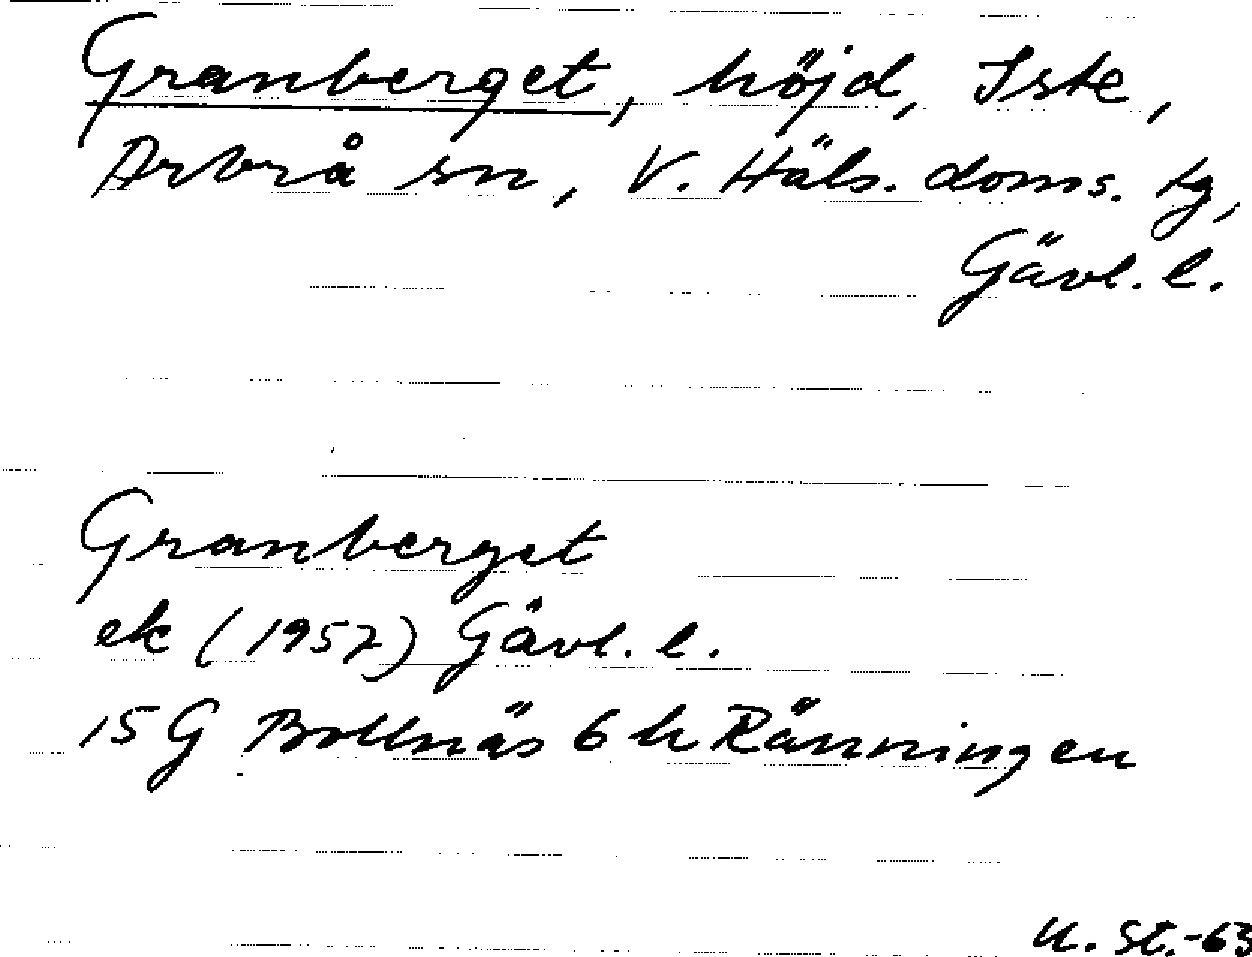 Granberget, höjd, Iste,
Arbrå sn, V. Häls. doms. tg,
Gävl. l.
Granberget
ek (1957) Gävl. l.
15 G Bollnäs 6 h Ränningen
U. St.-63